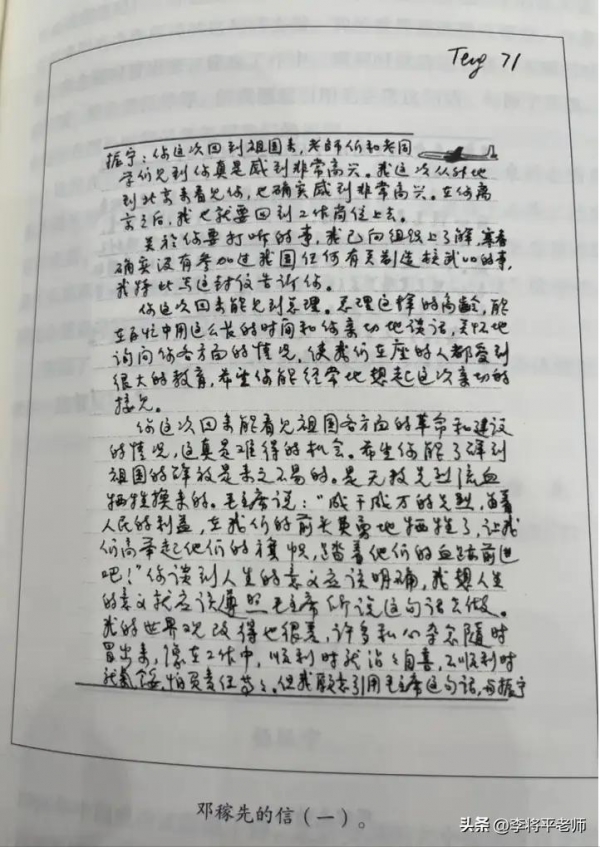 Teng 71
振宁：你这次回到祖国来，老师们和老同
学们见到你真是感到非常高兴。我这次从外地
到北京来看见你，也确实感到非常高兴。在你离
京之后，我也就要回到工作岗位上去。
关於你要打听的事，我已向组织上了解，寒春
确实没有参加过我国任何有关制造核武器的事，
我特此写这封信告诉你。
你这次回来能见到总理。总理这样的高龄，能
在百忙中用这么长的时间和你亲切地谈话，关怀地
询问你各方面的情况，使我们在座的人都受到
很大的教育，希望你能经常地想起这次亲切的
接见。
你这次回来能看见祖国各方面的革命和建设
的情况，这真是难得的机会。希望你能了解到
祖国的解放是来之不易的。是无数先烈流血
牺牲换来的。毛主席说：“成千成万的先烈，为着
人民的利益，在我们的前头英勇地牺牲了，让我
们高举起他们的旗帜，踏着他们的血迹前进
吧！”你谈到人生的意义应该明确，我想人生
的意义就应该遵照毛主席所说这句话去做。
我的世界观改得也很差，许多私心杂念随时
冒出来，像在工作中，顺利时就沾沾自喜，不顺利时
就气馁，怕负责任等等。但我愿意引用毛主席这句话，与振宁
邓稼先的信（一）。
头条@李将平老师